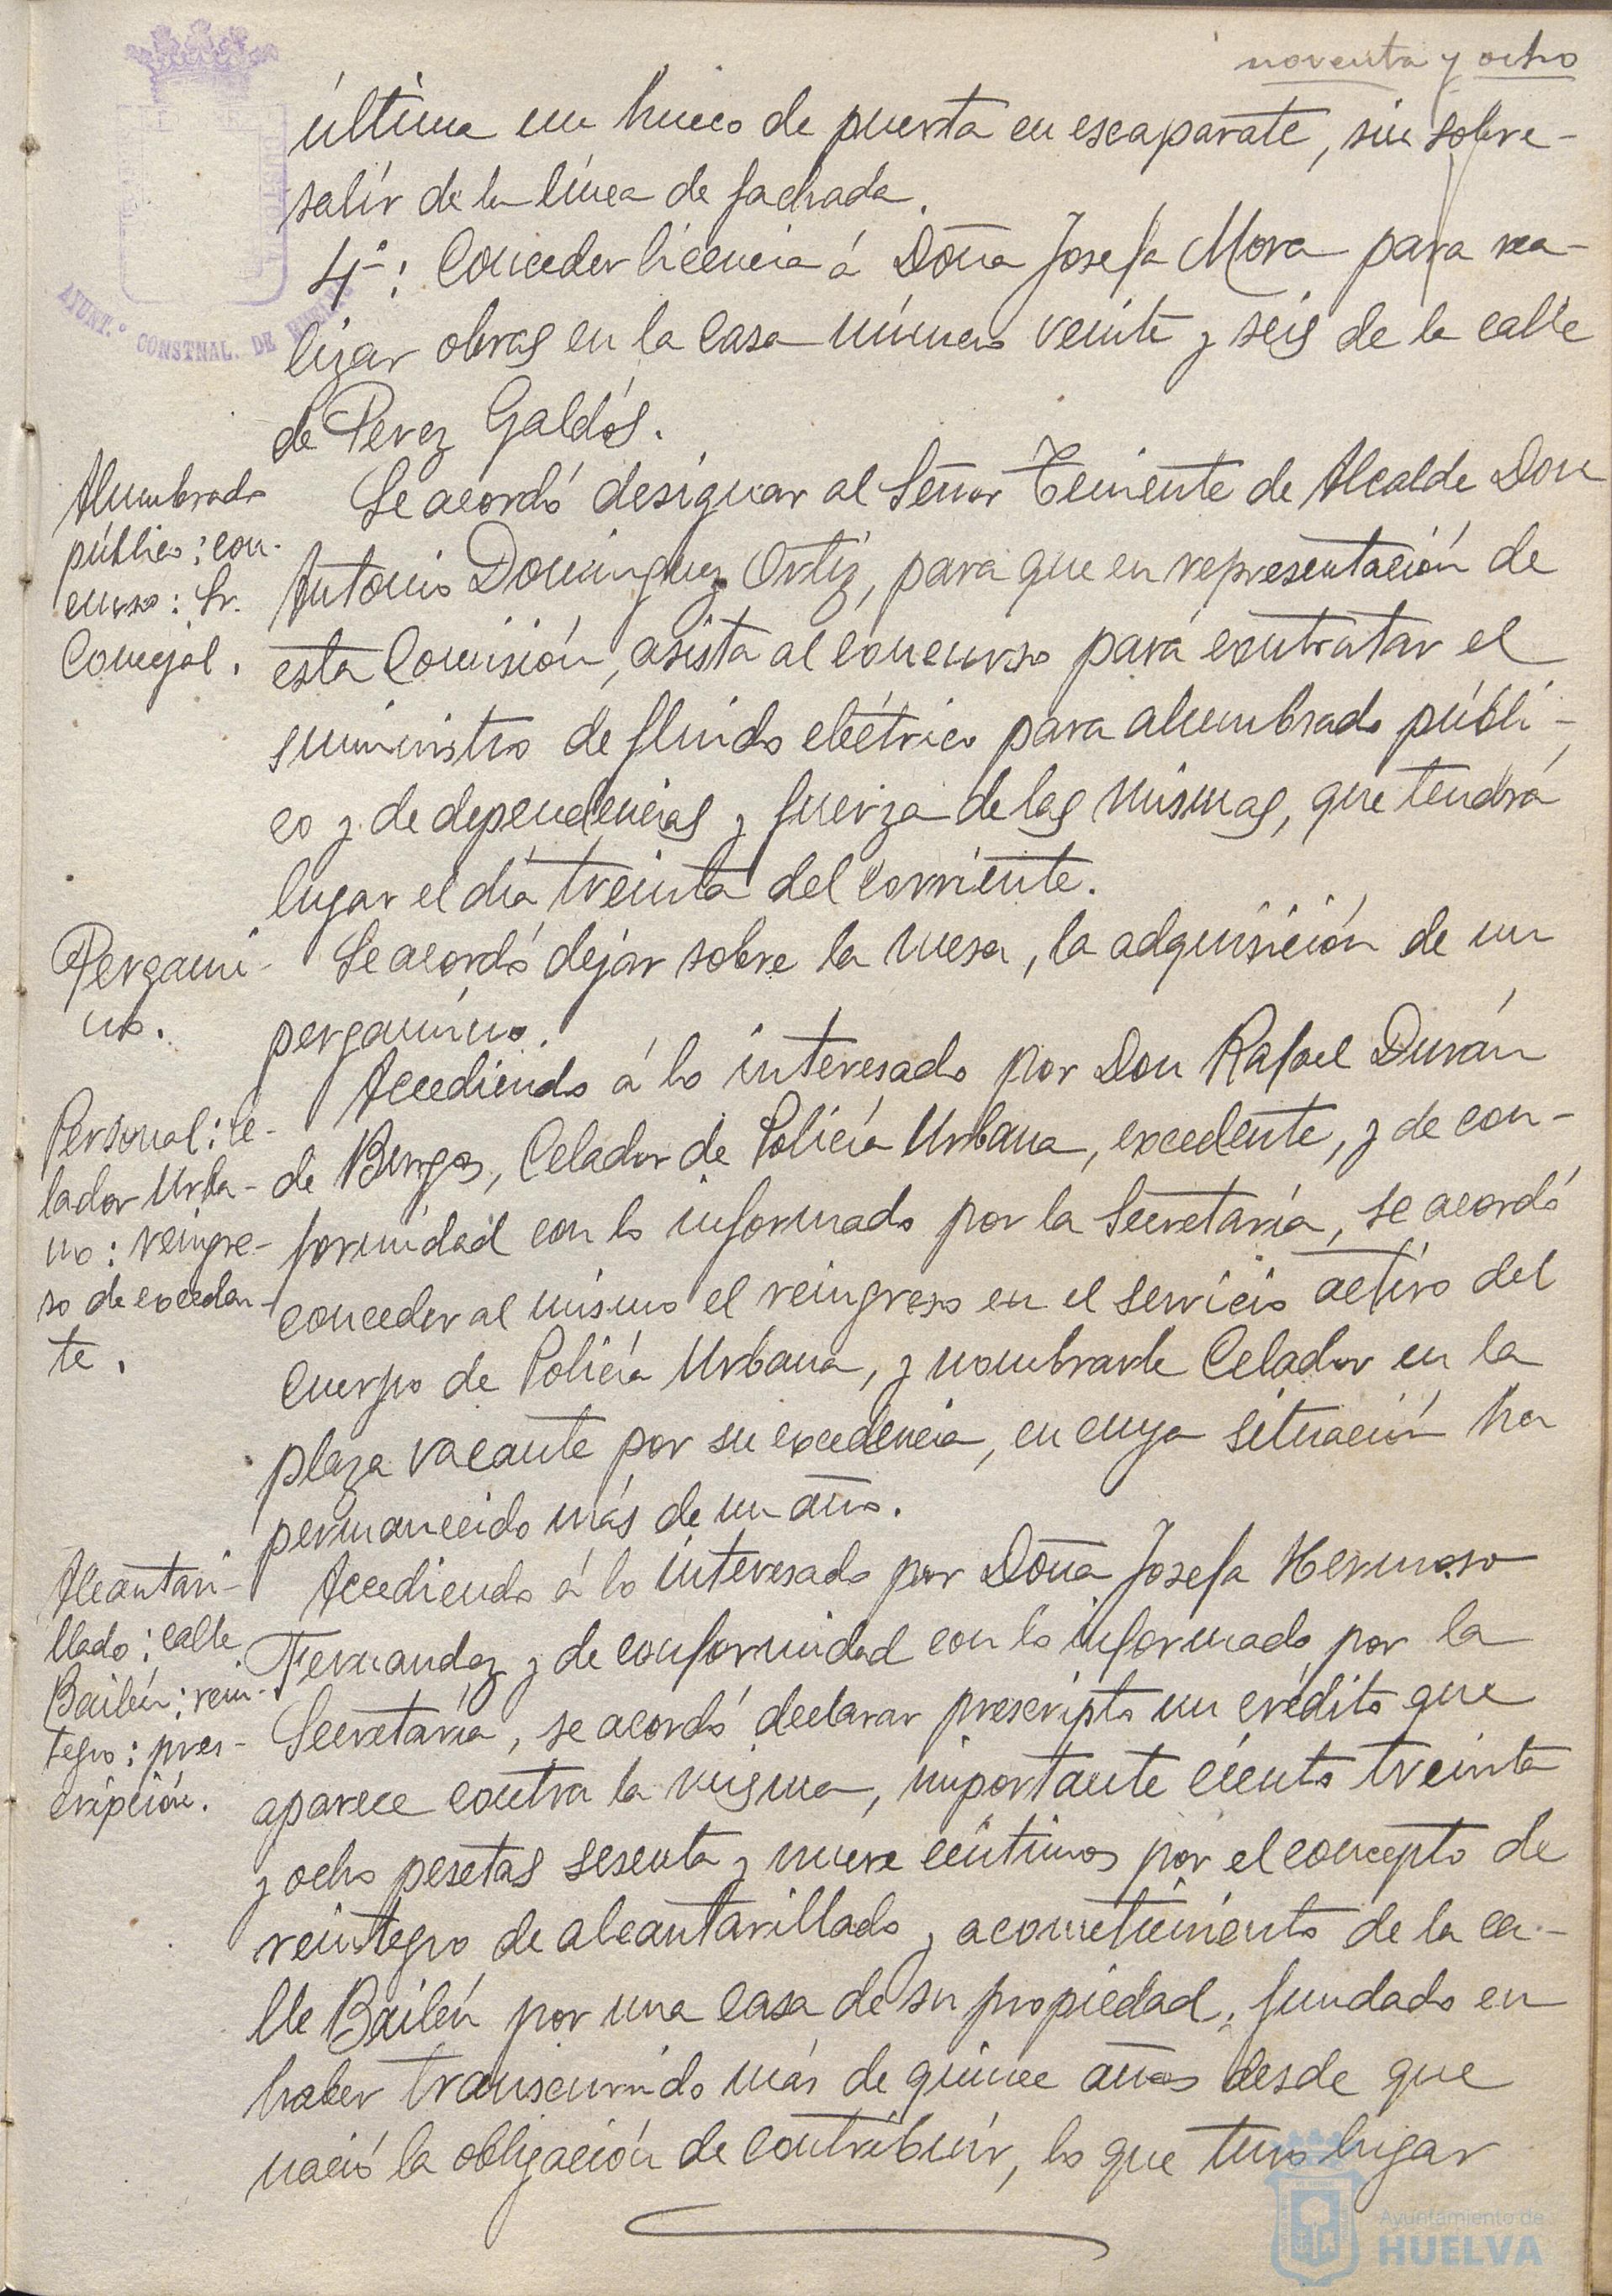 noventa y ocho
última un hueco de puerta en escaparate, sin sobre-
salir de la línea de fachada.
4º: Conceder licencia á Doña Josefa Mora para rea-
lizar obras en la casa número veinte y seis de la calle
de Perez Galdós.
Alumbrado
público: con-
curso: Sr.
Concejal.
Se acordó designar al Señor Teniente de Alcalde Don
Antonio Dominguez Ortiz, para que en representación de
esta Comisión, asista al concurso para contratar el
suministro de fluido eléctrico para alumbrado públi-
co y de dependencias y fuerza de las mismas, que tendrá
lugar el día treinta del corriente.
Pergami-
no.
Se acordó dejar sobre la mesa, la adquisición de un
pergamino.
Personal: Ce-
lador Urba-
no: reingre-
so de exceden-
te.
Accediendo á lo interesado por Don Rafael Durán
de Burgos, Celador de Policía Urbana, excedente, y de con-
formidad con lo informado por la Secretaría, se acordó
conceder al mismo el reingreso en el servicio activo del
Cuerpo de Policía Urbana, y nombrarle Celador en la
plaza vacante por su excedencia, en cuya situación ha
permanecido más de un año.
Alcantari-
llado: calle
Bailén: rein-
tegro: pres-
cripción.
Accediendo á lo interesado por Doña Josefa Hermoso
Fernandez y de conformidad con lo informado por la
Secretaría, se acordó declarar prescripto un crédito que
aparece contra la misma, importante ciento treinta
y ocho pesetas sesenta y nueve céntimos por el concepto de
reintegro de alcantarillado y acometimiento de la ca-
lle Bailén por una casa de su propiedad, fundado en
haber transcurrido más de quince años desde que
nació la obligación de contribuir, lo que tuvo lugar
AYUNT.º CONSTNAL. DE HUELVA
Ayuntamiento de
HUELVA